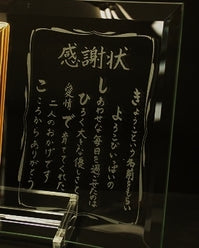 感謝状
きょうこという名前をもらい
よろこびいっぱいの
しあわせな毎日を過せたのは
ひろく大きな優しさと
愛情で育ててくれた
二人のおかげです
こころからありがとう